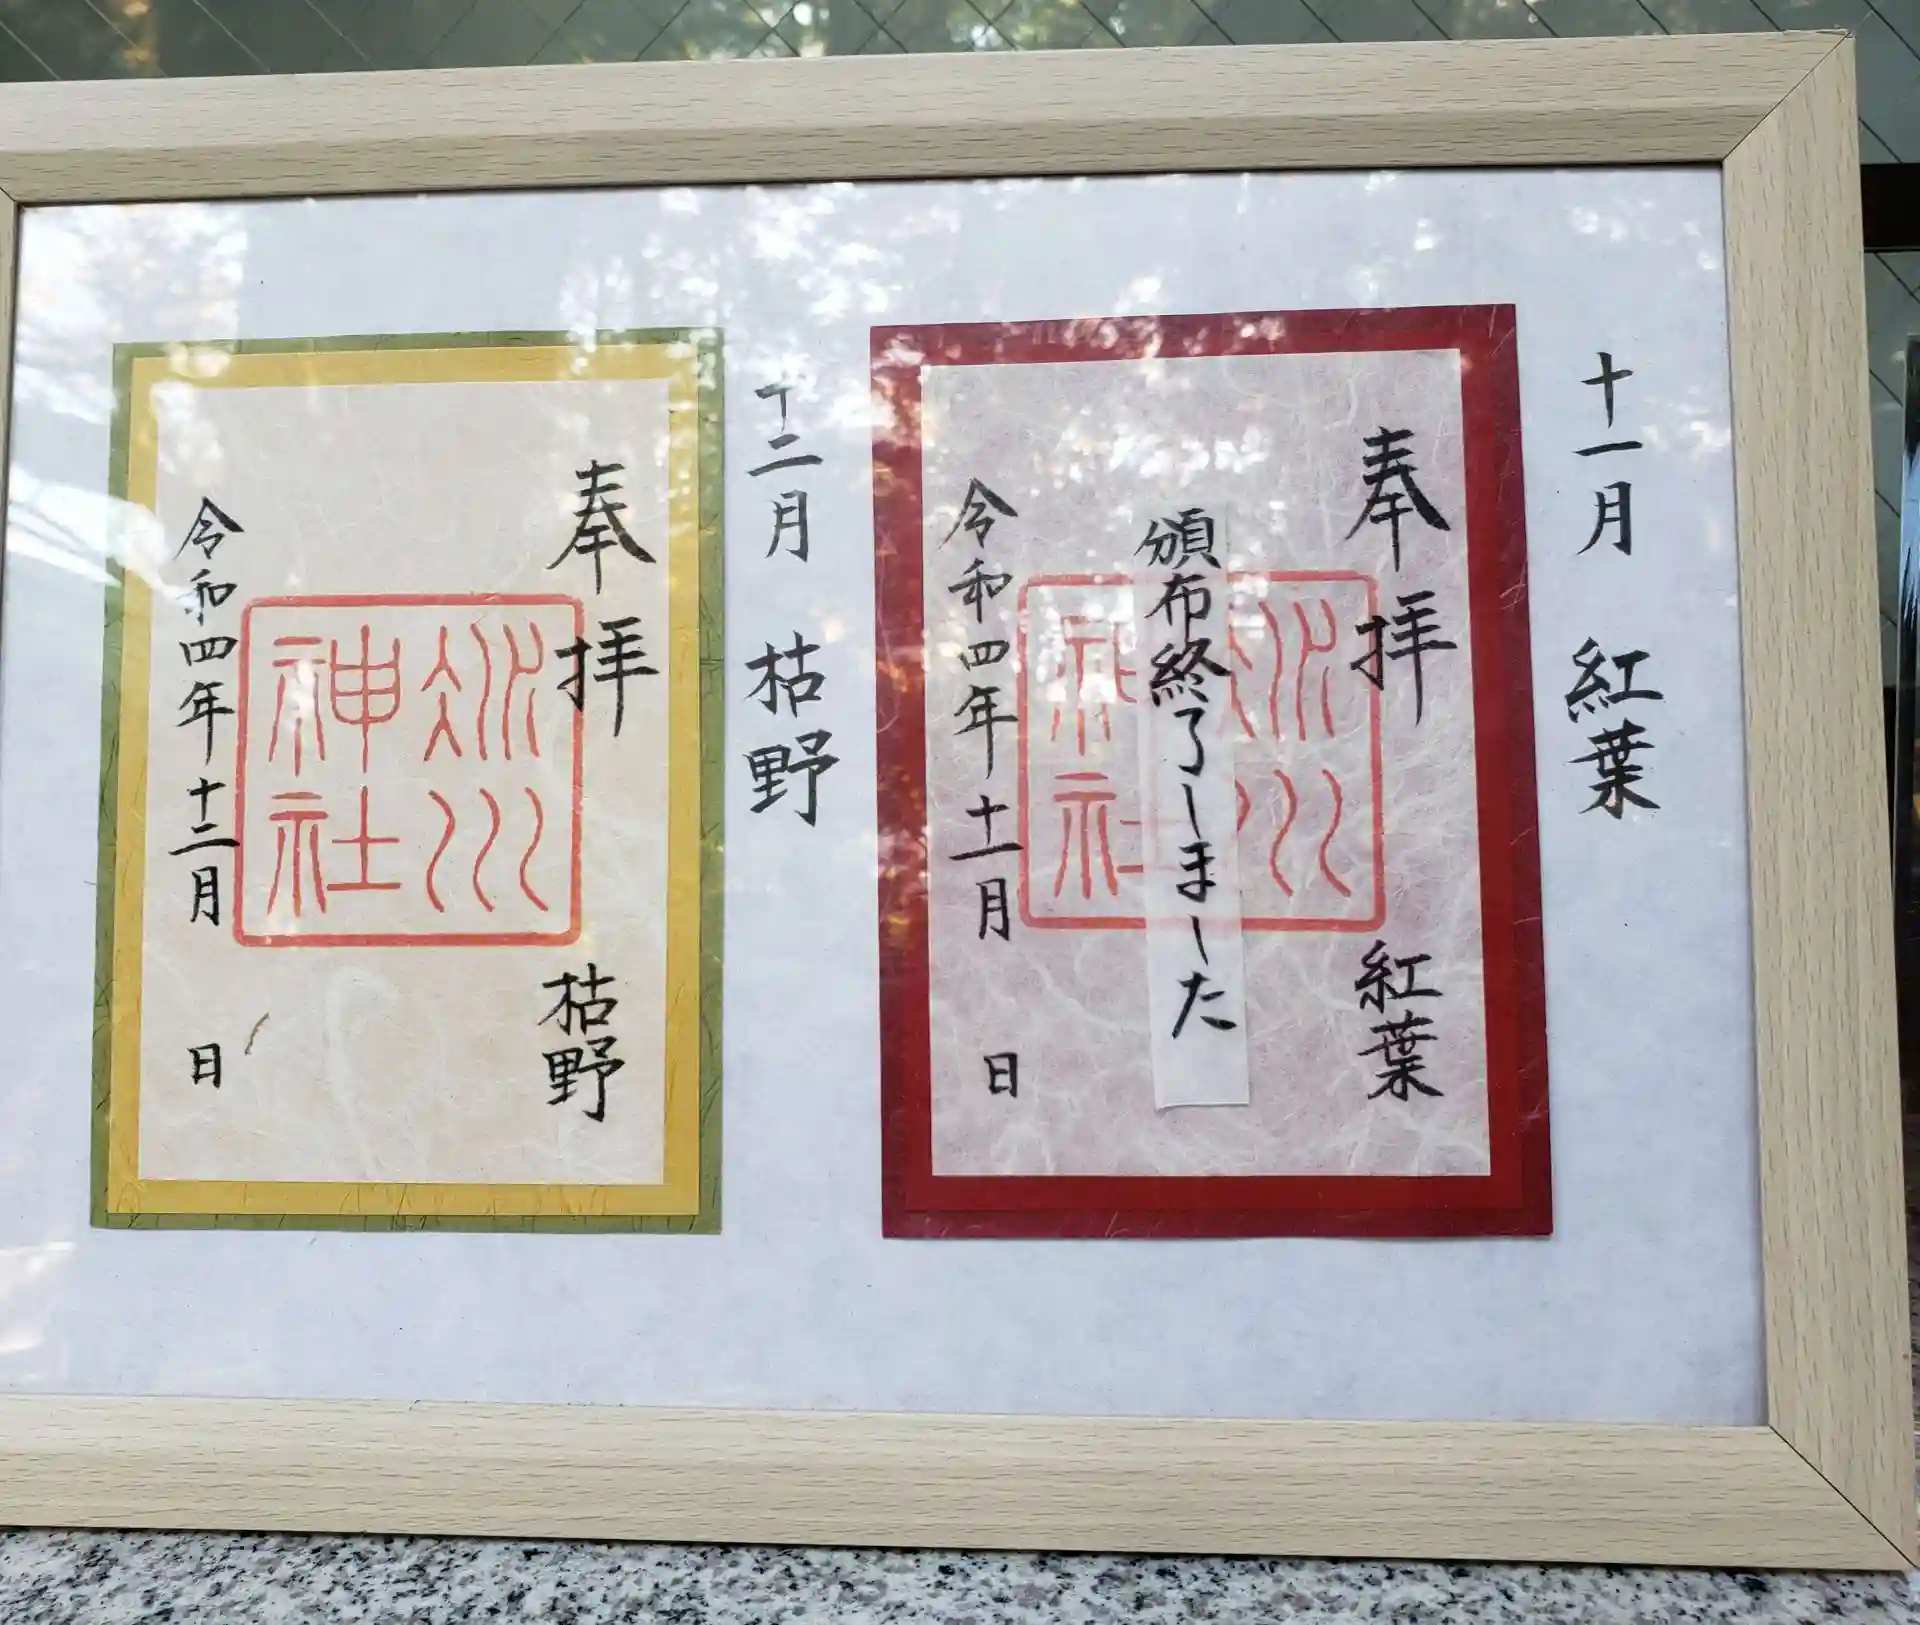 十一月　紅葉
奉拝　紅葉
頒布終了しました
令和四年十一月　日
十二月　枯野
奉拝　枯野
川
神社
令和四年十二月　日